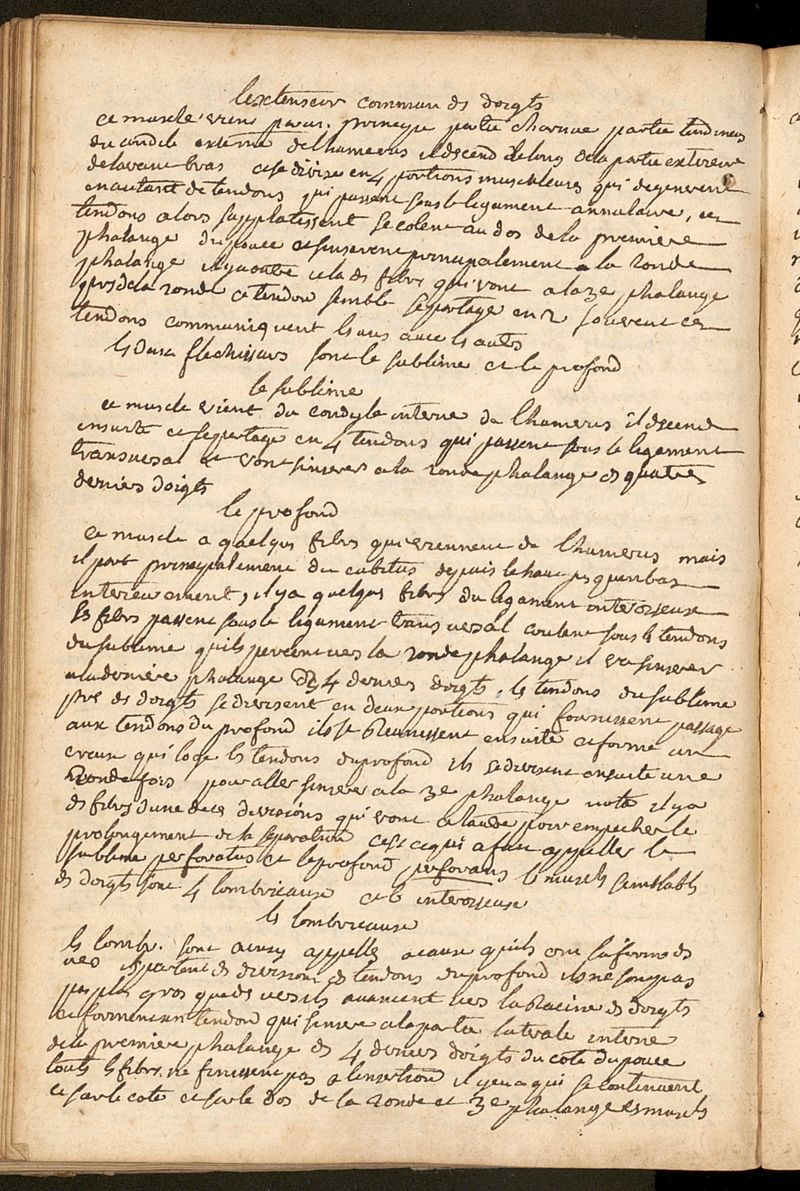 lextenseur commun ds doigts
ce muscle vien par principe partie charnue partie tendineus
du condile externe de lhumerus il dscend le long de la partie exterieure
de lavant bras et se divise en 4 portions musculeuses qui degenerent
en autant de tendons qui passent sous le ligament annulaire, ces
tendons alors sapplatissent se colent au dos de la premiere
phalange du pouce et sinserent principalement a la 2onde
phalange il y a outre cela ds fibrs qui vont a la 3e phalange
prs de la 2onde ce tendon semble se partage en 2 souvent ces
tendons communiquent ls uns avec ls autrs
ls deux flechisseurs sont le sublime et le profond
le sublime
ce muscle vient du condyle interne de lhumerus il dscend
ensuite et se partage en 4 tendons qui passent sous le ligament
transversal et vont sinserer a la 2onde phalange ds quatre
derniers doigts
le profond
ce muscle a quelqus fibrs qui viennent de lhumerus mais
il part principalement du cubitus depuis le haut jusquen bas
interieurement, il y a quelqus fibrs du ligament interosseux
ls fibrs passent sous le ligament transversal coulent sous ls tendons
du sublime quils percent vers la 2onde phalange il va sinserer
a la derniere phalange ds 4 derniers doigts, ls tendons du sublime
prs ds doigts se divisent en deux portions qui fournissent passage
aux tendons du profond ils se reunissent ensuite et forme un
creux qui loge ls tendons du profond ils se divisent ensuite une
2onde fois pour aller sinserer a la 3e phalange note il y a
ds fibrs dune de ces divisions qui vont a lautre pour empecher le
prolongement de la separation cest ce qui a fait appeller le
sublime perforatus et le profond perforans ls muscls semblabls
ds doigts sont 4 lombricaux et ls interosseux
ls lombricaux
ls lomb. sont ainsy appellés a cause quils ont la forme ds
vers ils partent ds divisions ds tendons du profond ils ne sont pas
pas plus gros que ds vers ils avancent vers la racine ds doigts
et forment un tendon qui sinsere a la partie laterale interne
de la premiere phalange ds 4 derniers doigts du coté du pouce
touts ls fibrs ne finissent pas a linsertion il y en a qui se continuent
et sur le coté et sur le dos de la 2onde et 3e phalange cs muscls